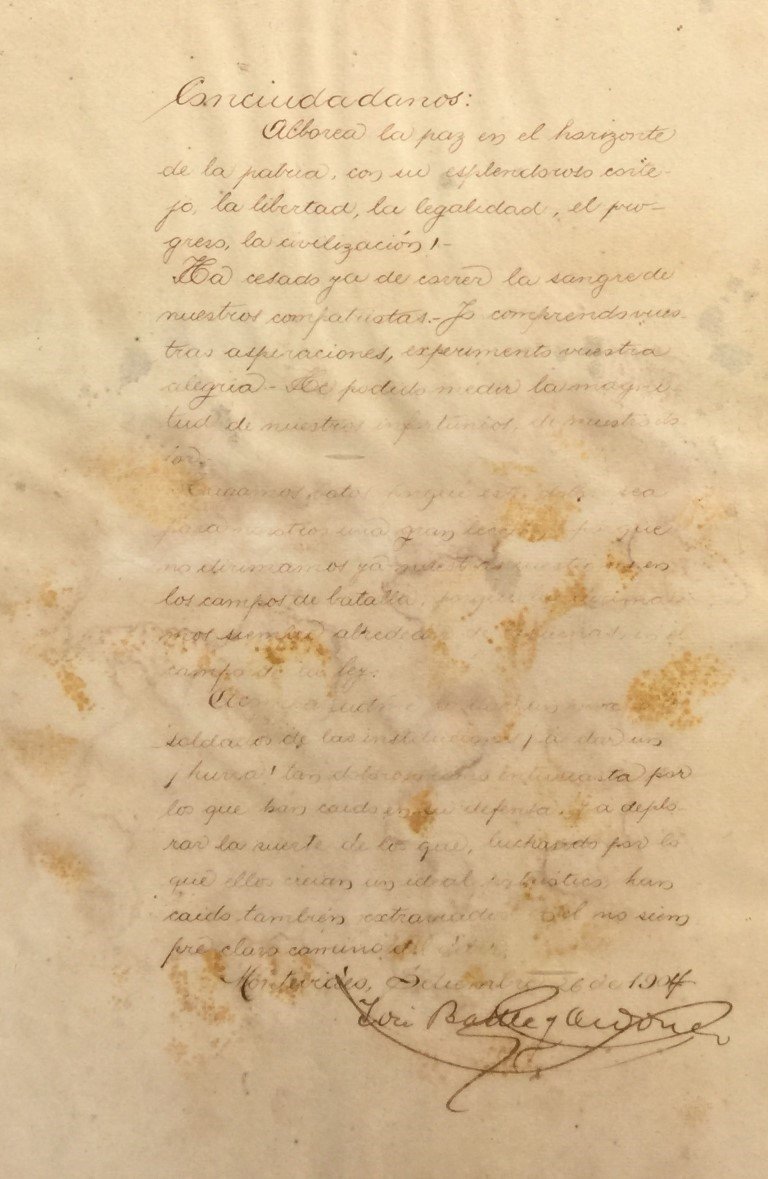 Conciudadanos:
Alborea la paz en el horizonte
de la patria, con su esplendoroso corte-
jo, la libertad, la legalidad, el pro-
greso, la civilización!-
Ha cesado ya de correr la sangre de
nuestros compatriotas.- Yo comprendo vues-
tras aspiraciones, experimento vuestra
alegria.- He podido medir la magni-
tud de nuestros infortunios, de nuestro do-
lor.
Hagamos votos
para nosotros una gran que
no dirimamos ya nuestras en
los campos de batalla,
mos siempre alrededor de
campo de la ley.
soldados de las instituciones y a dar un
¡hurra! tan doloroso como entusiasta por
los que han caido en su defensa. Y a deplo-
rar la suerte de los que, luchando por lo
que ellos creian un ideal patriótico, han
caido tambien extraviados en el no siem
pre claro camino del deber.
Montevideo, Setiembre 26 de 1904
José Batlle y Ordoñez